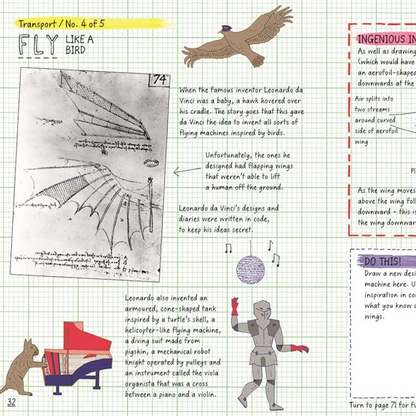 Transport / No. 4 of 5
FLY LIKE A
BIRD
74
When the famous inventor Leonardo da
Vinci was a baby, a hawk hovered over
his cradle. The story goes that this gave
da Vinci the idea to invent all sorts of
flying machines inspired by birds.
Unfortunately, the ones he
designed had flapping wings
that weren't able to lift
a human off the ground.
Leonardo da Vinci's designs and
diaries were written in code,
to keep his ideas secret.
Leonardo also invented an
armoured, cone-shaped tank
inspired by a turtle's shell, a
helicopter-like flying machine,
a diving suit made from
pigskin, a mechanical robot
knight operated by pulleys and
an instrument called the viola
organista that was a cross
between a piano and a violin.
32
INGENIOUS IN
As well as drawing
(which would have
an aerofoil-shaped
downwards at the
Air splits into
two streams
around curved
side of aerofoil
wing
As the wing moves
above the wing foll
downward - this is
the wing
DO THIS!
Draw a new des
machine here. U
inspiration in co
what you know
wings.
Turn to page 71 for fu